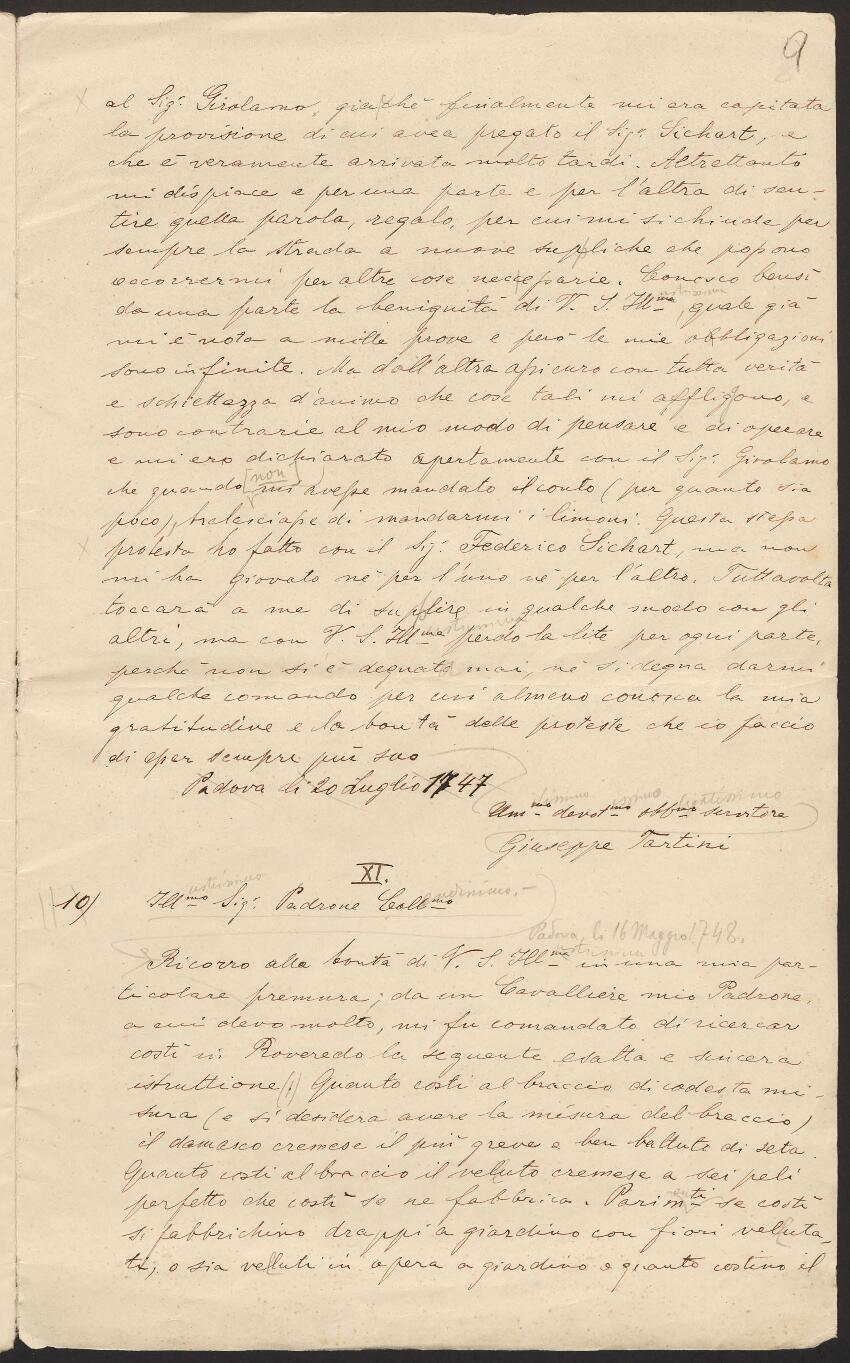 9
al Sig.r Girolamo, giacchè finalmente mi era capitata
la provisione di cui avea pregato il Sig.r Sichart, e
che è veramente arrivata molto tardi. Altrettanto
mi dispiace e per una parte e per l'altra di sen-
tire quella parola, regalo, per cui mi si chiude per
sempre la strada a nuove suppliche che possono
occorrermi per altre cose neccessarie. Conosco bensì
da una parte la benignità di V. S. Ill.ma, quale già
mi è nota a mille prove e però le mie obbligazioni
sono infinite. Ma dall'altra assicuro con tutta verità
e schiettezza d'animo che cose tali mi affligono, e
sono contrarie al mio modo di pensare e di operare
e mi ero dichiarato apertamente con il Sig.r Girolamo
che quando [non] mi avesse mandato il conto (per quanto sia
poco), tralasciasse di mandarmi i limoni. Questa stessa
protesta ho fatto con il Sig.r Federico Sichart, ma non
mi ha giovato nè per l'uno nè per l'altro. Tuttavolta
toccarà a me di suplire in qualche modo con gli
altri, ma con V. S. Ill.ma perdo la lite per ogni parte,
perchè non si è degnato mai, nè si degna darmi
qualche comando per cui almeno conosca la mia
gratitudine e la bontà delle proteste che io faccio
di esser sempre più suo
Padova li 20 Luglio 1747
Um.mo devot.mo obb.mo servitore
Giuseppe Tartini
XI.
10) Ill.mo Sig.r Padrone Coll.mo
Padova, li 16 Maggio 1748.
Ricorro alla bontà di V. S. Ill.ma in una mia par-
ticolare premura; da un Cavalliere mio Padrone,
a cui devo molto, mi fu comandato di ricercar
costì in Roveredo la seguente esatta e sincera
istruttione (:) Quanto costi al braccio di codesta mi-
sura (e si desidera avere la misura del braccio)
il damasco cremese il più greve e ben battuto di seta.
Quanto costi al braccio il veluto cremese a sei peli
perfetto che costì se ne fabbrica. Parim.ti se costì
si fabbrichino drappi a giardino con fiori velluta-
ti, o sia velluti in opera a giardino e quanto costino il